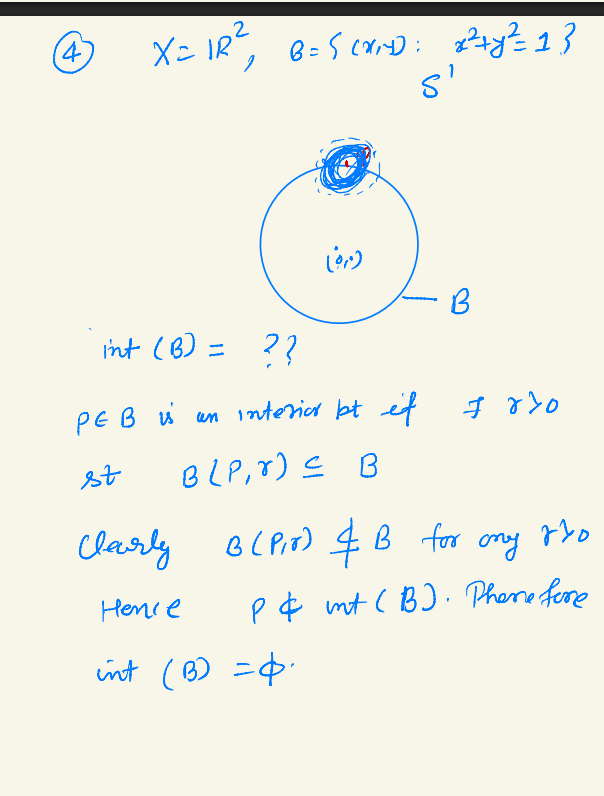 ④ X = ℝ², B = { (x,y) : x²+y² = 1 }
S¹
(0,0)
B
int (B) = ??
P ∈ B is an interior pt if ∃ r>0
st B(P,r) ⊆ B
Clearly B(P,r) ⊄ B for any r>0
Hence P ∉ int (B). Therefore
int (B) = ϕ.